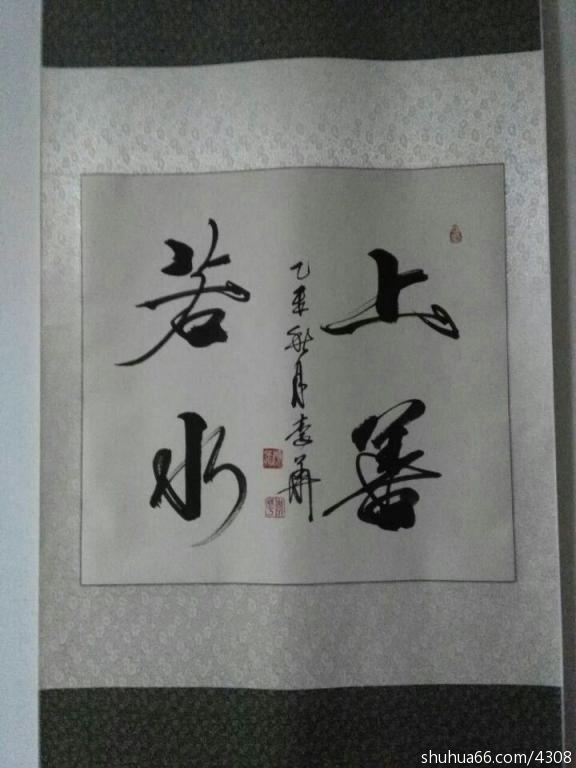 上善
若水
乙未秋月李華
shuhua66.com/4308